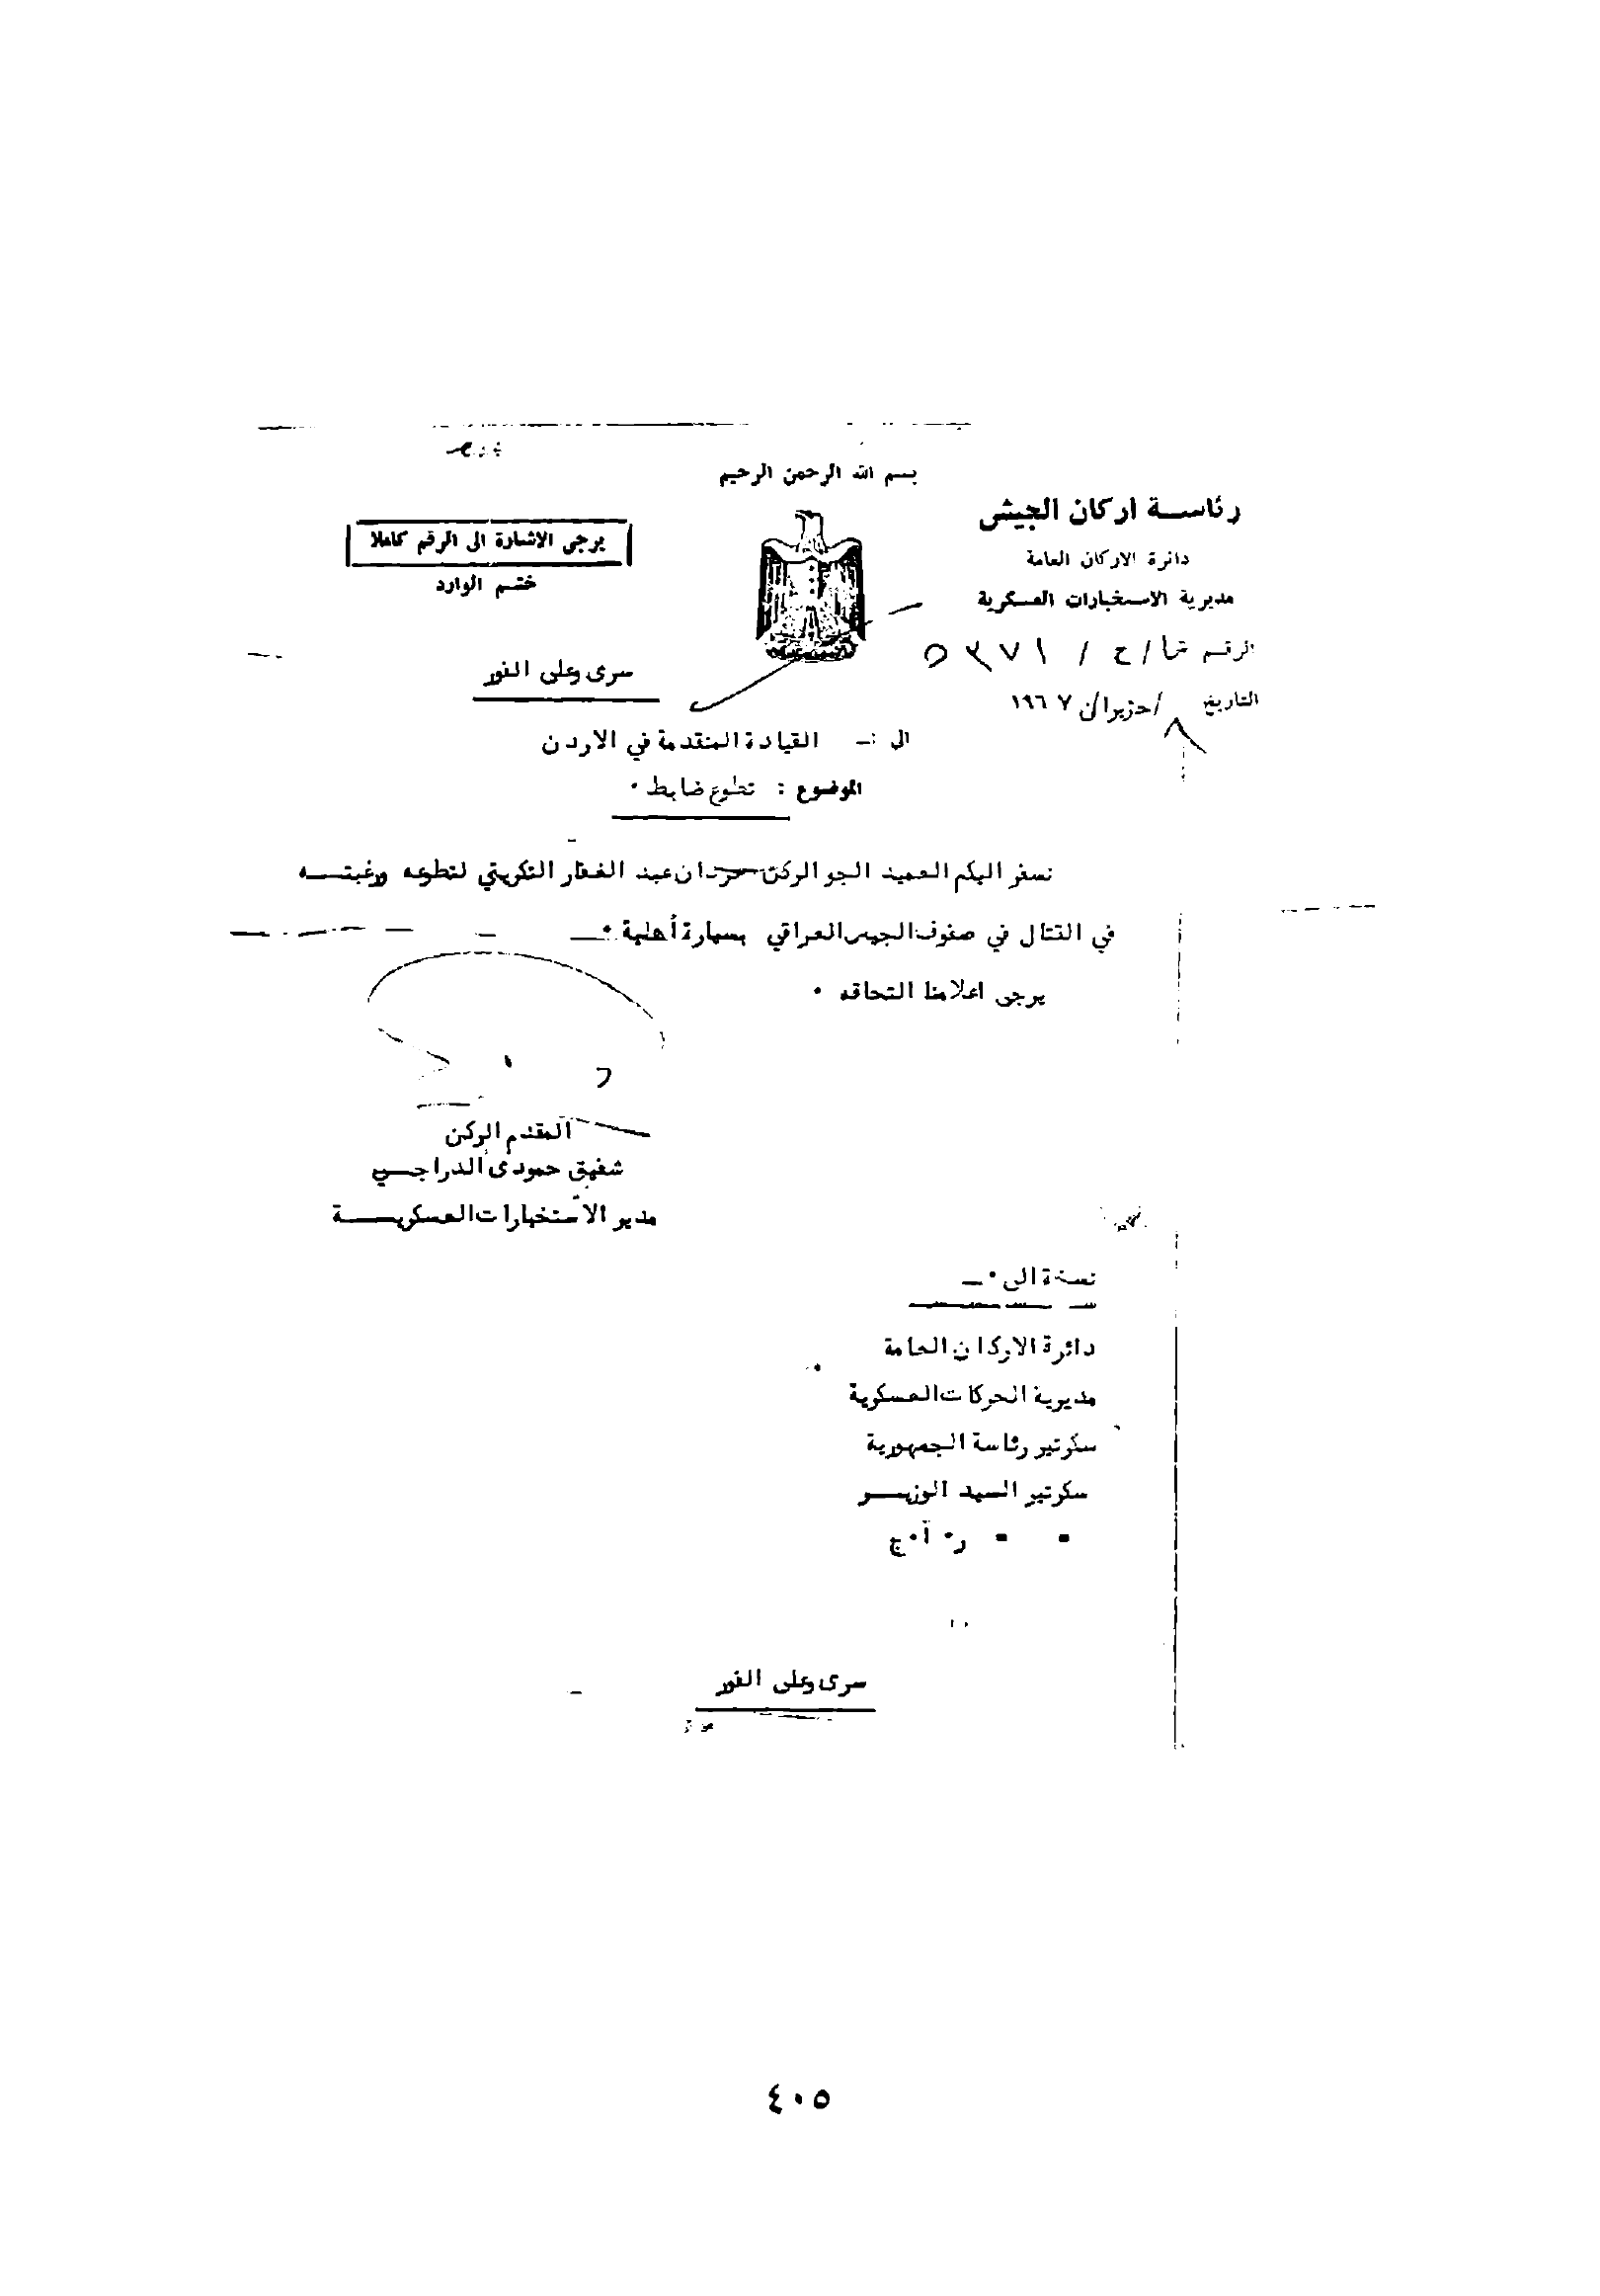 بسم الله الرحمن الرحيم
رئاسة اركان الجيش
دائرة الاركان العامة
مديرية الاستخبارات العسكرية
الرقم ش/ح/
التاريخ ٨/حزيران ١٩٦٧
يرجى الاشارة الى الرقم كاملا
ختم الوارد
سرى وعلى الفور
الى :- القيادة المتقدمة في الاردن
الموضوع : تطوع ضابط ٠
نسفر اليكم العميد الجو الركن حردان عبد الغفار التكريتي لتطوعه ورغبته
في القتال في صفوف الجيش العراقي بسيارة أهلية ٠
يرجى اعلامنا التحاقه ٠
المقدم الركن
شفيق حمودى الدراجي
مدير الاستخبارات العسكرية
نسخة الى ٠-
دائرة الاركان العامة
مديرية الحركات العسكرية
سكرتير رئاسة الجمهورية
سكرتير السيد الوزير
= = ر٠أ٠ج
سرى وعلى الفور
٤٠٥